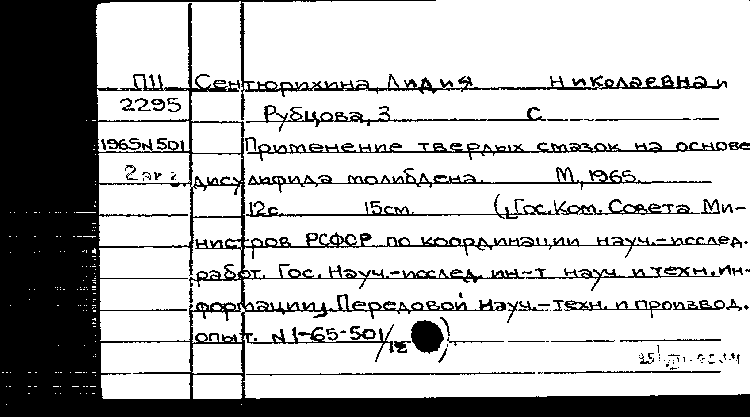 П11 Сентюрихина, Лидия Николаевна и
2295 Рубцова, З. С.
1965 N 501 Применение твердых смазок на основе
2 экз. дисульфида молибдена. М., 1965.
12с. 15см. (Гос. Ком. Совета Ми-
нистров РСФСР по координации науч.-исслед.
работ. Гос. Науч.-исслед. ин-т науч. и техн. ин-
формации. Передовой науч.-техн. и производ.
опыт. N 1-65-501/12).